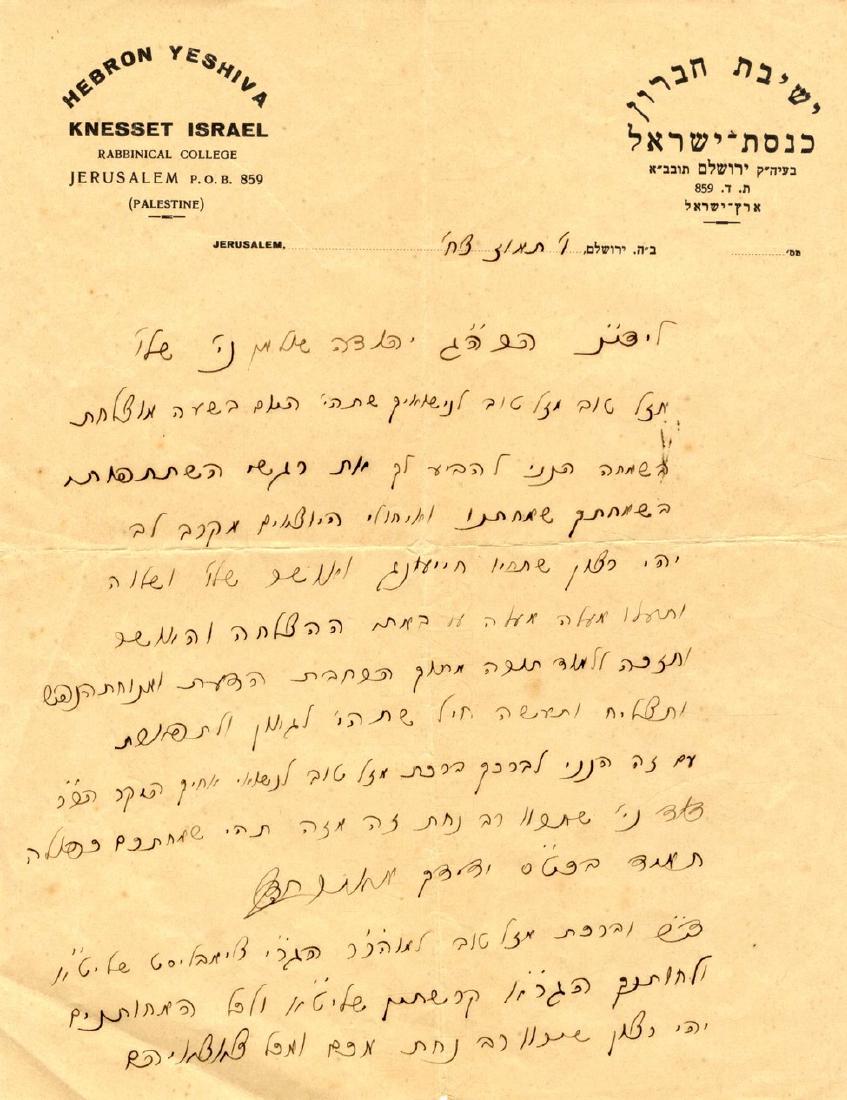 HEBRON YESHIVA
KNESSET ISRAEL
RABBINICAL COLLEGE
JERUSALEM P.O.B. 859
(PALESTINE)
ישיבת חברון
כנסת־ישראל
בעיה״ק ירושלם תובב״א
ת. ד. 859
ארץ־ישראל
JERUSALEM,
ב״ה. ירושלם, ו' תמוז צח'
מס'
לידי״נ הרה״ג יהודה שלו'
מזל טוב מזל טוב לנישואיך שתהי' בשעה מוצלחת
בשמחה הנני להביע לך את רגשי השתתפותי
בשמחתך שמחתנו ואיחולי היוצאים מקרב לב
יהי רצון שתחיו חיי עונג ואושר שלו' ושלוה
ותעלו מעלה מעלה ההצלחה והאושר
ותזכה ללמוד תורה מתוך הרחבת הדעת ומנוחת הנפש
ותצליח ותעשה חיל שתהי' לגאון ולתפארת
עם זה הנני לברכך ברכת מזל טוב לנשואי אחיך היקר
דוד ני' שתרוו רב נחת זה מזה תהי שמחתכם כפולה
תמיד ידידך
ד״ש וברכת מזל טוב למוה״ר הגר״י צימבליסט שליט״א
ולחותנך הגר״א קרשתין שליט״א ולכל המחותנים
יהי רצון שירוו רב נחת מכם ומכל צאצאיהם